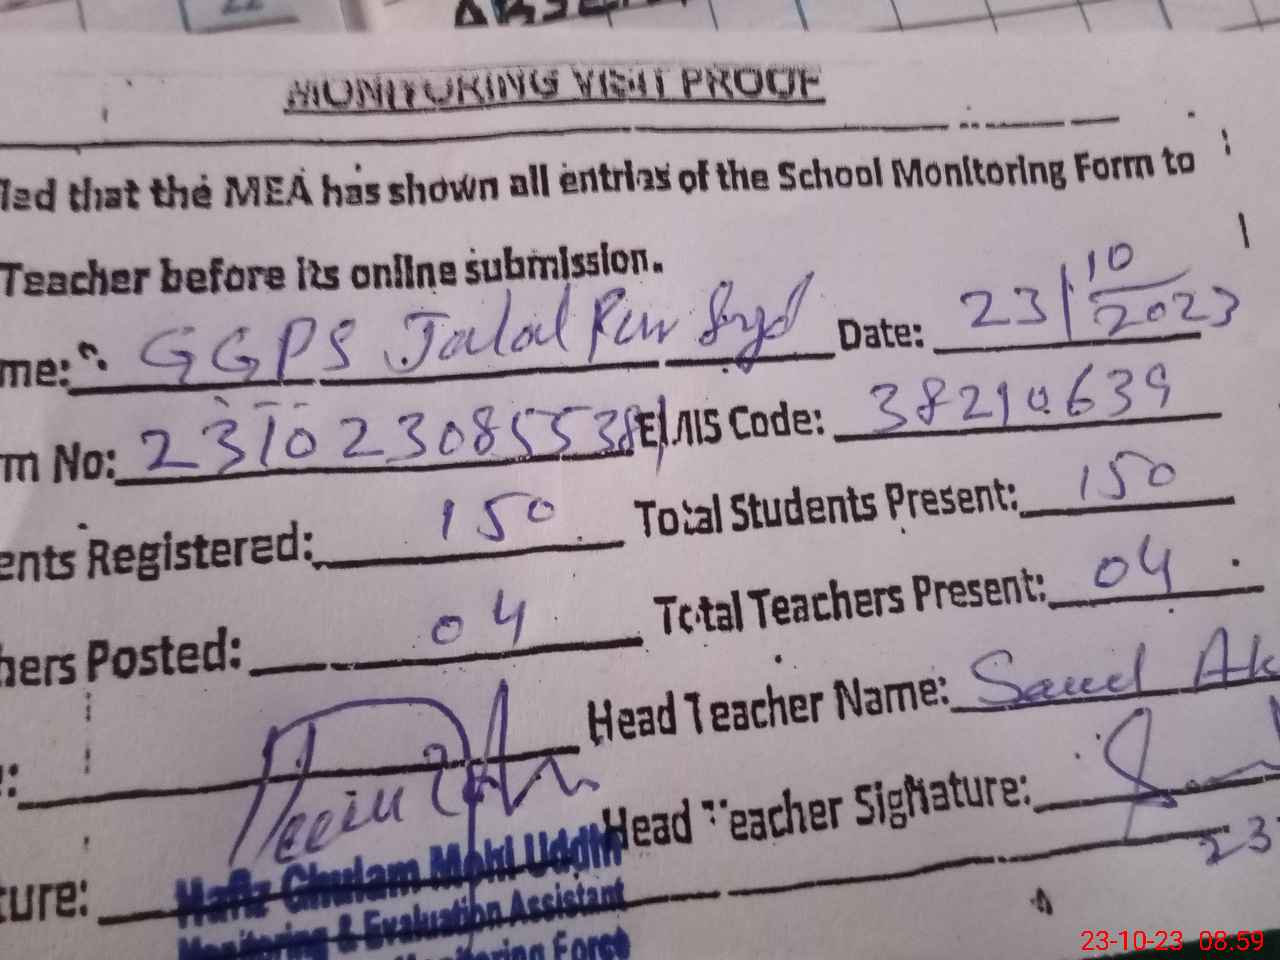 MONITORING VISIT PROOF
led that the MEA has shown all entries of the School Monitoring Form to
Teacher before its online submission.
me: GGPS Jalal Pur Syd Date: 23/10/2023
m No: 23102308553 EMIS Code: 38210639
ents Registered: 150 Total Students Present: 150
hers Posted: 04 Total Teachers Present: 04
Head Teacher Name:
Head Teacher Signature:
23
ture:
Hafiz Ghulam Mohi Uddin
Monitoring & Evaluation Assistant
Monitoring Force
23-10-23 08:59